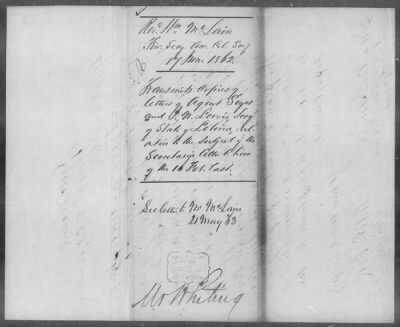 Rev. Wm McLain
Fin. Secy Am. Col. Socy
17 Jan. 1863.
Transmits copies of
letters of Agent Seys
and J. N. Lewis, Secy
of State of Liberia, rel-
ative to the subject of the
Secretary's letter to him
of the 16 Feb. last.
See letter to Mr McLain
21 May 63
Mr Whiting